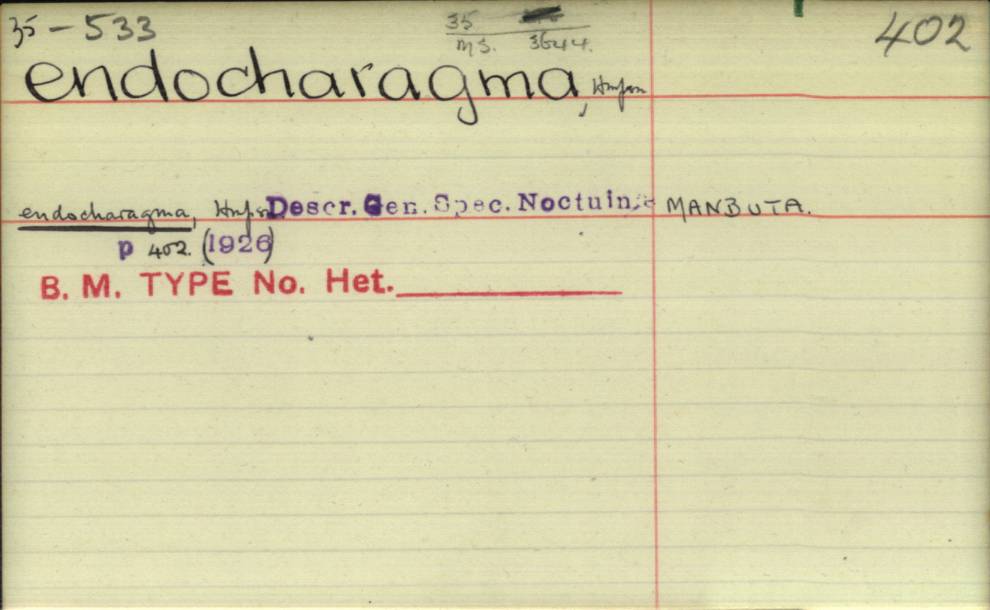 35 - 533
35
MS. 3644.
402
endocharagma, Hmpsn
endocharagma, Hmpsn Descr. Gen. Spec. Noctuinæ MANBUTA.
p 402. (1926)
B. M. TYPE No. Het.